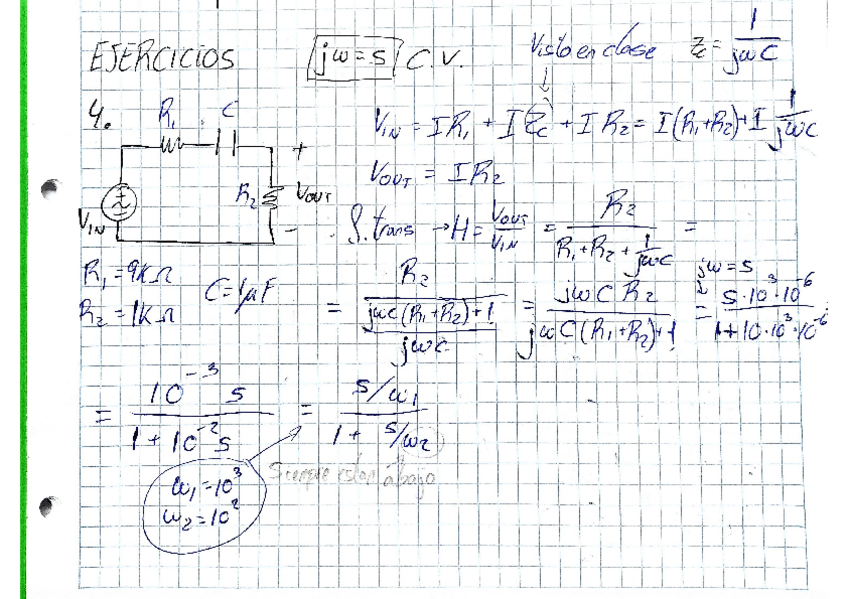 EJERCICIOS
jω = s C.V.
Visto en clase
Zc = 1/jωC
4.
R1 C
+
R2 VOUT
-
VIN
R1 = 9KΩ
R2 = 1KΩ
C = 1μF
VIN = IR1 + I(Zc) + IR2 = I(R1+R2) + I 1/jωC
VOUT = IR2
f. trans → H = VOUT/VIN = R2/(R1 + R2 + 1/jωC) =
jω = s
= R2/((jωC(R1+R2)+1)/jωC) = jωC R2/(jωC(R1+R2)+1) = s·10^3·10^-6/(1+10·10^3·10^-6
= 10^-3 s/(1 + 10^-2 s) = s/ω1/(1 + s/ω2)
Siempre están abajo
ω1 = 10^3
ω2 = 10^2